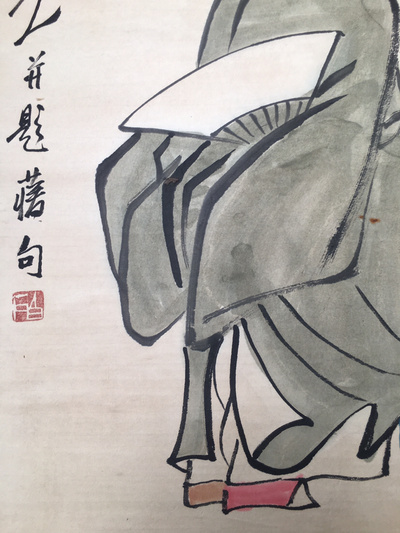 并題舊句